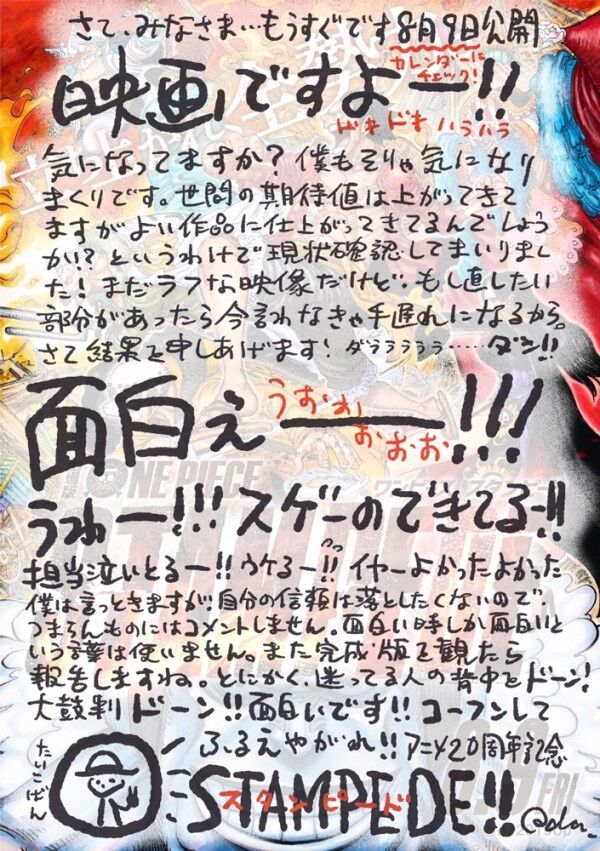 さて、みなさま…もうすぐです8月9日公開
カレンダーに
チェック!
映画ですよー!!
ドキドキ ハラハラ
気になってますか?僕もそりゃ気になり
まくりです。世間の期待値は上がってきて
ますがよい作品に仕上がってきてるんでしょう
か!?というわけで現状確認してまいりまし
た!まだラフな映像だけど…もし直したい
部分があったら今言わなきゃ手遅れになるから。
さて結果を申しあげます!ダララララ……ダン!!
面白ぇーー!!!
うおお
おおお
うわー!!!スゲーのできてるー!!
担当泣いとるー!!ウケるー!!イヤーよかったよかった
僕は言っときますが、自分の信頼は落としたくないので
つまらんものにはコメントしません。面白い時しか面白いと
いう言葉は使いません。また完成版を観たら
報告しますね。とにかく、迷ってる人の背中をドーン!
太鼓判ドーン!!面白いです!!コーフンして
ふるえやがれ!!アニメ20周年記念
たいこばん
STAMPEDE!!
スタンピード
ONE PIECE
FRI